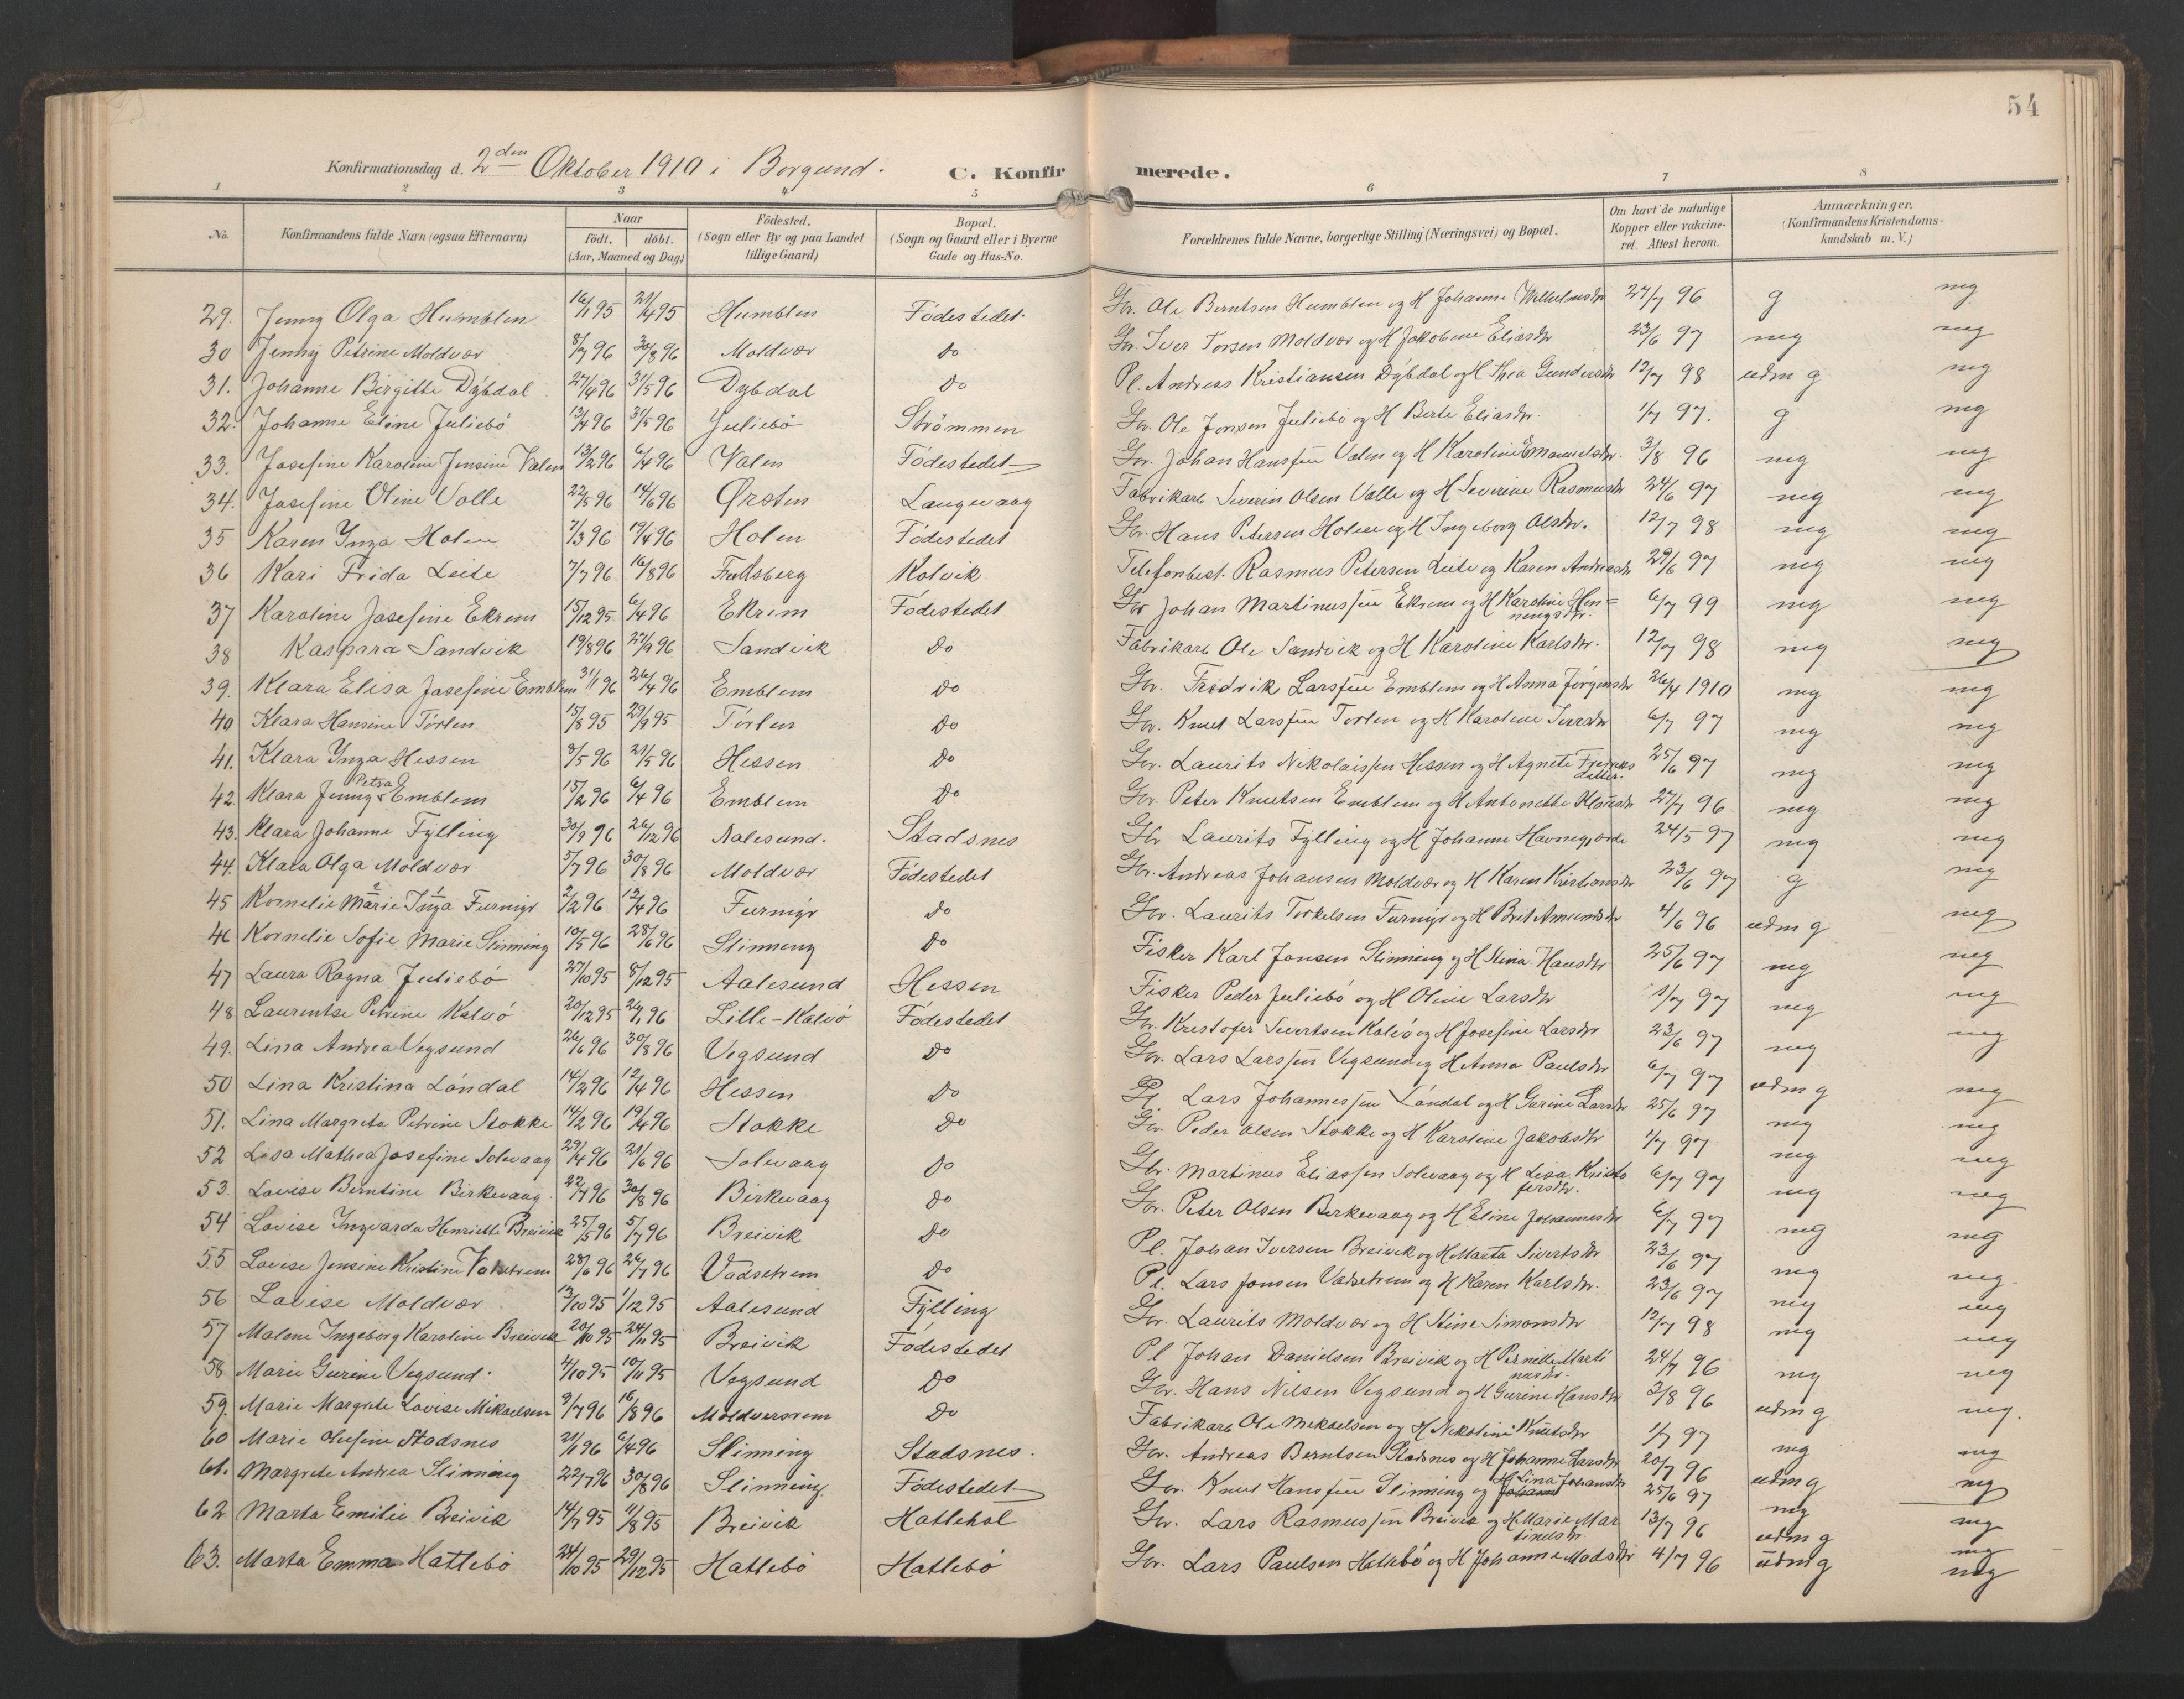 54
Konfirmationsdag d. 2den Oktober 1910 i Borgund. C. Konfirmerede.
1 2 3 4 5 6 7 8
No. Konfirmandens fulde Navn (ogsaa Efternavn) Naar født. døbt. (Aar, Maaned og Dag) Fødested. (Sogn eller By og paa Landet tillige Gaard) Bopæl. (Sogn og Gaard eller i Byerne Gade og Hus-No. Forældrenes fulde Navne, borgerlige Stilling (Næringsvei) og Bopæl. Om havt de naturlige Kopper eller vakcineret. Attest herom. Anmærkninger. (Konfirmandens Kristendomskundskab m. V.)
29. Jenny Olga Humblen 16/11 95 21/4 95 Humblen Fødestedet. Gr. Ole Berntsen Humblen og H Johanne Wilhelmsdtr 27/7 96 g mg
30 Jenny Petrine Moldvær 8/7 96 30/8 96 Moldvær do Gr. Iver Torsen Moldvær og H Jakobine Eliasdtr 23/6 97 mg mg
31. Johanne Birgitte Dybdal 27/4 96 31/5 96 Dybdal do Pl. Andreas Kristiansen Dybdal og H Thea Gundersdtr 12/7 98 udm g mg
32. Johanne Eline Juliebø 13/4 96 31/5 96 Juliebø Strømmen Gr. Ole Jonsen Juliebø og H Berte Eliasdtr. 1/7 97. g mg
33. Josefine Karoline Jensine Valen 13/2 96 6/4 96 Valen Fødestedet Gr. Johan Hanssen Valen og H Karoline Emanuelsdtr. 3/8 96 mg mg
34. Josefine Oline Volle 22/5 96 14/6 96 Ørsten Langevaag Fabrikarb Severin Olsen Volle og H Severine Rasmusdtr 24/6 97 mg mg
35 Karen Inga Holen 7/3 96 19/4 96 Holen Fødestedet Gr. Hans Petersen Holen og H Ingeborg Olsdtr. 12/7 98 mg mg
36 Kari Frida Leite 7/7 96 16/8 96 Kolvik Telefonbest. Rasmus Petersen Leite og Karen Andreasdtr 29/6 97 mg mg
37 Karoline Josefine Ekrem 15/12 95 6/4 96 Ekrem Fødestedet Gr Johan Martinussen Ekrem og H Karoline Henningsdtr. 6/7 99 mg mg
38 Kaspara Sandvik 19/8 96 27/9 96 Sandvik do Fabrikarb Ole Sandvik og H Karoline Karlsdtr. 12/7 98 mg mg
39. Klara Elisa Josefine Emblem 31/1 96 26/4 96 Emblem do Gr. Fredrik Larssen Emblem og H Anna Jørgensdtr 26/4 1910 mg mg
40 Klara Hansine Tørlen 15/8 95 29/9 95 Tørlen do Gr. Knut Larssen Torlen og H Karoline Iversdtr 6/7 97 mg mg
41. Klara Inga Hessen 3/5 96 21/5 96 Hessen do Gr. Laurits Nikolaissen Hessen og H Agnete Fredriksdatter. 25/6 97 mg mg
42. Klara Jenny Petra Emblem 15/2 96 6/4 96 Emblem do Gr. Peter Knutsen Emblem og H Antonette Klausdtr 27/7 96 mg mg
43. Klara Johanne Fylling 30/9 96 26/12 96 Aalesund. Stadsnes Gr Laurits Fylling og H Johanne Havnegjorde 24/5 97 mg mg
44. Klara Olga Moldvær 5/7 96 30/8 96 Moldvær Fødestedet Gr. Andreas Johansen Moldvær og H Karen Kristiansdtr 23/6 97 g mg
45 Kornelie Marie Inga Furmyr 2/2 96 12/4 96 Furmyr do Gr. Laurits Torkelsen Furmyr og H Brit Amundsdtr 4/6 96 udm g mg
46 Kornelie Sofie Marie Slinning 10/5 96 28/6 96 Slinning do Fisker Karl Jonsen Slinning og H Stina Hansdtr 25/6 97 mg mg
47 Laura Ragna Juliebø 27/10 95 8/12 95 Aalesund Hessen Fisker Peder Juliebø og H Oline Larsdtr 1/7 97 mg mg
48 Laurentse Petrine Kalvø 20/12 95 26/1 96 Lille-Kalvø Fødestedet Gr. Kristofer Sivertsen Kalvø og H Josefine Larsdtr 23/6 97 mg mg
49. Lina Andrea Vegsund 26/6 96 30/8 96 Vegsund do Gr. Lars Larssen Vegsund og H Anna Paulsdtr 6/7 97 udm g mg
50 Lina Kristina Løndal 14/2 96 12/4 96 Hessen do Pl Lars Johannessen Løndal og H Gurine Larsdtr 25/6 97 mg mg
51. Lina Margreta Petrine Stokke 14/2 96 19/4 96 Stokke do Gr. Peder Olsen Stokke og H Karoline Jakobsdtr 1/7 97 mg mg
52 Lisa Mathea Josefine Solevaag 29/4 96 21/6 96 Solevaag do Gr. Martinus Eliassen Solevaag og H Lisa Kristofersdtr. 6/7 97 mg mg
53. Lovise Berntine Birkevaag. 22/7 96 30/8 96 Birkevaag do Gr. Peter Olsen Birkevaag og H Eline Johannesdtr 6/7 97 mg mg
54 Lovise Ingvarda Henriette Breivik 25/5 96 5/7 96 Breivik do Pl. Johan Iversen Breivik og H Marta Sivertsdtr 23/6 97 mg mg
55 Lovise Jensine Kristine Vadsetrem 28/6 96 26/7 96 Vadsetrem do Pl. Lars Jonsen Vadsetrem og H Karen Karlsdtr. 23/6 97 mg mg
56 Lovise Moldvær 13/10 95 1/12 95 Aalesund Fylling Gr. Laurits Moldvær og H Stine Simonsdtr 12/7 98 mg mg
57 Malene Ingeborg Karoline Breivik 20/10 95 24/11 95 Breivik Fødestedet Pl Johan Danielsen Breivik og H Pernille Martinusdtr. 24/7 96 mg mg
58 Marie Gurine Vegsund. 4/10 95 10/11 95 Vegsund do Gr. Hans Nilsen Vegsund og H Gurine Hansdtr 3/8 96 udm g mg.
59. Marie Margrete Lovise Mikaelsen 9/7 96 16/8 96 Moldversrem do Fabrikarb Ole Mikaelsen og H Nikoline Knutsdtr 1/7 97 mg mg
60 Marie Olufine Stadsnes 21/1 96 6/4 96 Slinning Stadsnes. Gr. Andreas Berntsen Stadsnes og H Johanne Larsdtr 20/7 96 udm g mg
61. Margrete Andrea Slinning 22/7 96 30/8 96 Slinning. Fødestedet Gr. Knut Hanssen Slinning og H Lina Johansdtr 25/6 97 mg mg
62 Marta Emilie Breivik 14/7 95 11/8 95 Breivik Hatlehol Gr. Lars Rasmussen Breivik og H Marie Martinusdtr. 13/7 96 udm g mg
63. Marta Emma Hatlebø 24/10 95 29/12 95 Hatlebø Hatlebø Gr. Lars Paulsen Hatlebø og H Johanne Madsdtr 4/7 96 udm g mg